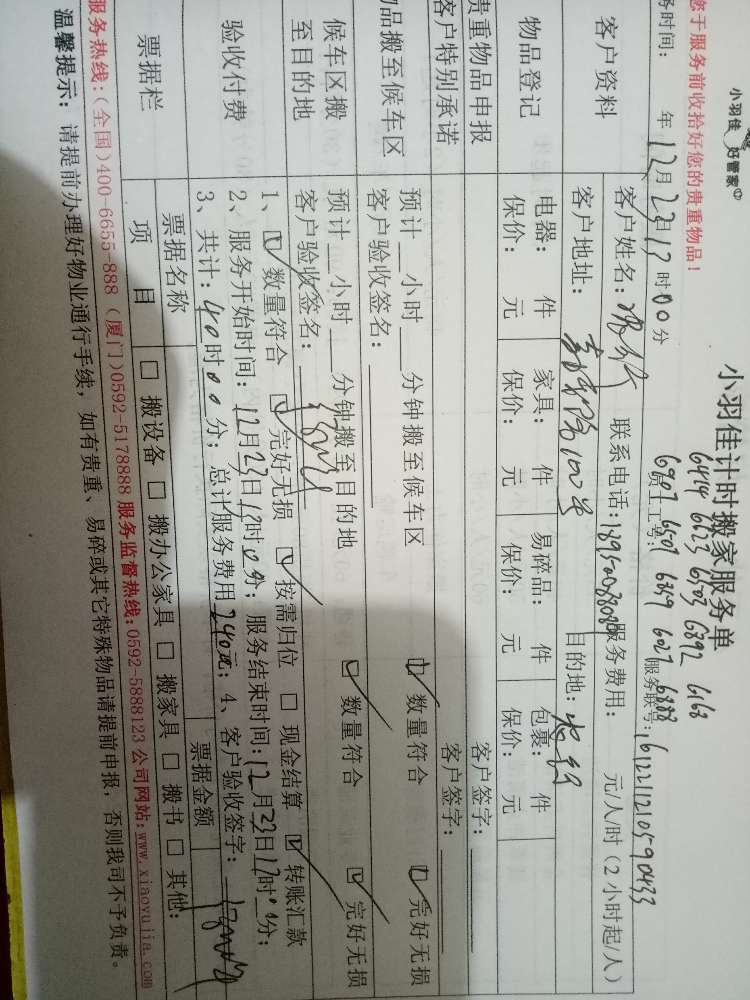 小羽佳 好管家
小羽佳计时搬家服务单
6414 6623 6703 6892 6168
6907 6501 6859 6027 6888
员工工号:
您于服务前收拾好您的贵重物品!
务时间: 年12月23日13时00分
服务联号:
客户资料
客户姓名: 联系电话: 服务费用: 元/人/时(2小时起/人)
客户地址: 目的地:
物品登记
电器: 件 家具: 件 易碎品: 件 包裹: 件
保价: 元 保价: 元 保价: 元 保价: 元
贵重物品申报 客户签字:
客户特别承诺 客户签字:
物品搬至候车区
预计__小时__分钟搬至候车区 数量符合 完好无损
客户验收签名:
候车区搬至目的地
预计__小时__分钟搬至目的地 数量符合 完好无损
客户验收签名:
验收付费
1、☑数量符合 ☑完好无损 ☑按需归位 □现金结算 ☑转账汇款
2、服务开始时间:12月23日13时0分; 服务结束时间:12月23日17时00分;
3、共计:40时00分; 总计服务费用240元; 4、客户验收签字:
票据栏
票据名称 票据金额
项目 □搬设备 □搬办公家具 □搬家具 □搬书 □其他:
服务热线:(全国)400-6655-888 (厦门)0592-5178888 服务监督热线:0592-5888123 公司网站:www.xiaoyujia.com
温馨提示: 请提前办理好物业通行手续,如有贵重、易碎或其它特殊物品请提前申报,否则我司不予负责。